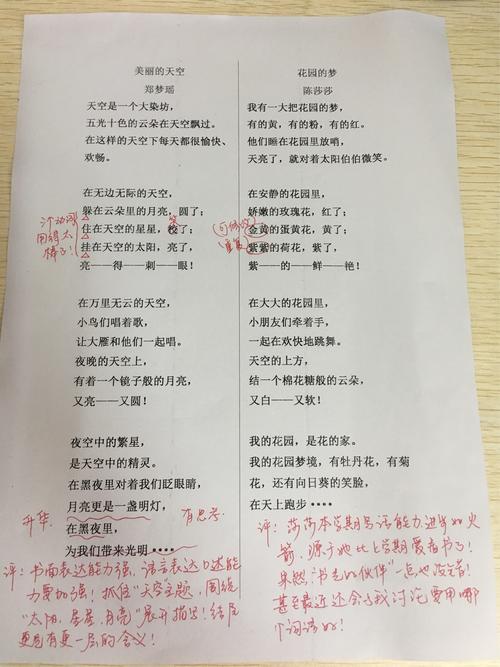 美丽的天空
郑梦瑶
天空是一个大染坊，
五光十色的云朵在天空飘过。
在这样的天空下每天都很愉快、
欢畅。
在无边无际的天空，
躲在云朵里的月亮，圆了；
住在天空的星星，
挂在天空的太阳，亮了，
亮——得——刺——眼！
用得太
棒了！
在万里无云的天空，
小鸟们唱着歌，
让大雁和他们一起唱。
夜晚的天空上，
有着一个镜子般的月亮，
又亮——又圆！
夜空中的繁星，
是天空中的精灵。
在黑夜里对着我们眨眼睛，
月亮更是一盏明灯，
在黑夜里，
为我们带来光明····
升华
有思考
评：书面表达能力强，语言表达口述能
力要加强！抓住“天空主题，围绕
“太阳、星星、月亮”展开描写！结尾
更是有更一层的含义！
花园的梦
陈莎莎
我有一大把花园的梦，
有的黄，有的粉，有的红。
他们睡在花园里放哨，
天亮了，就对着太阳伯伯微笑。
在安静的花园里，
娇嫩的玫瑰花，红了；
金黄的蛋黄花，黄了；
紫紫的荷花，紫了，
紫——的——鲜——艳！
在大大的花园里，
小朋友们牵着手，
一起在欢快地跳舞。
天空的上方，
结一个棉花糖般的云朵，
又白——又软！
我的花园，是花的家。
我的花园梦境，有牡丹花，有菊
花，还有向日葵的笑脸，
在天上跑步····
评：莎莎本学期写话能力进步如火
箭，源于她比上学期爱看书了！
果然“书是的伙伴”一点也没言！
甚至最近还会与我讨论要用哪
个词语好！